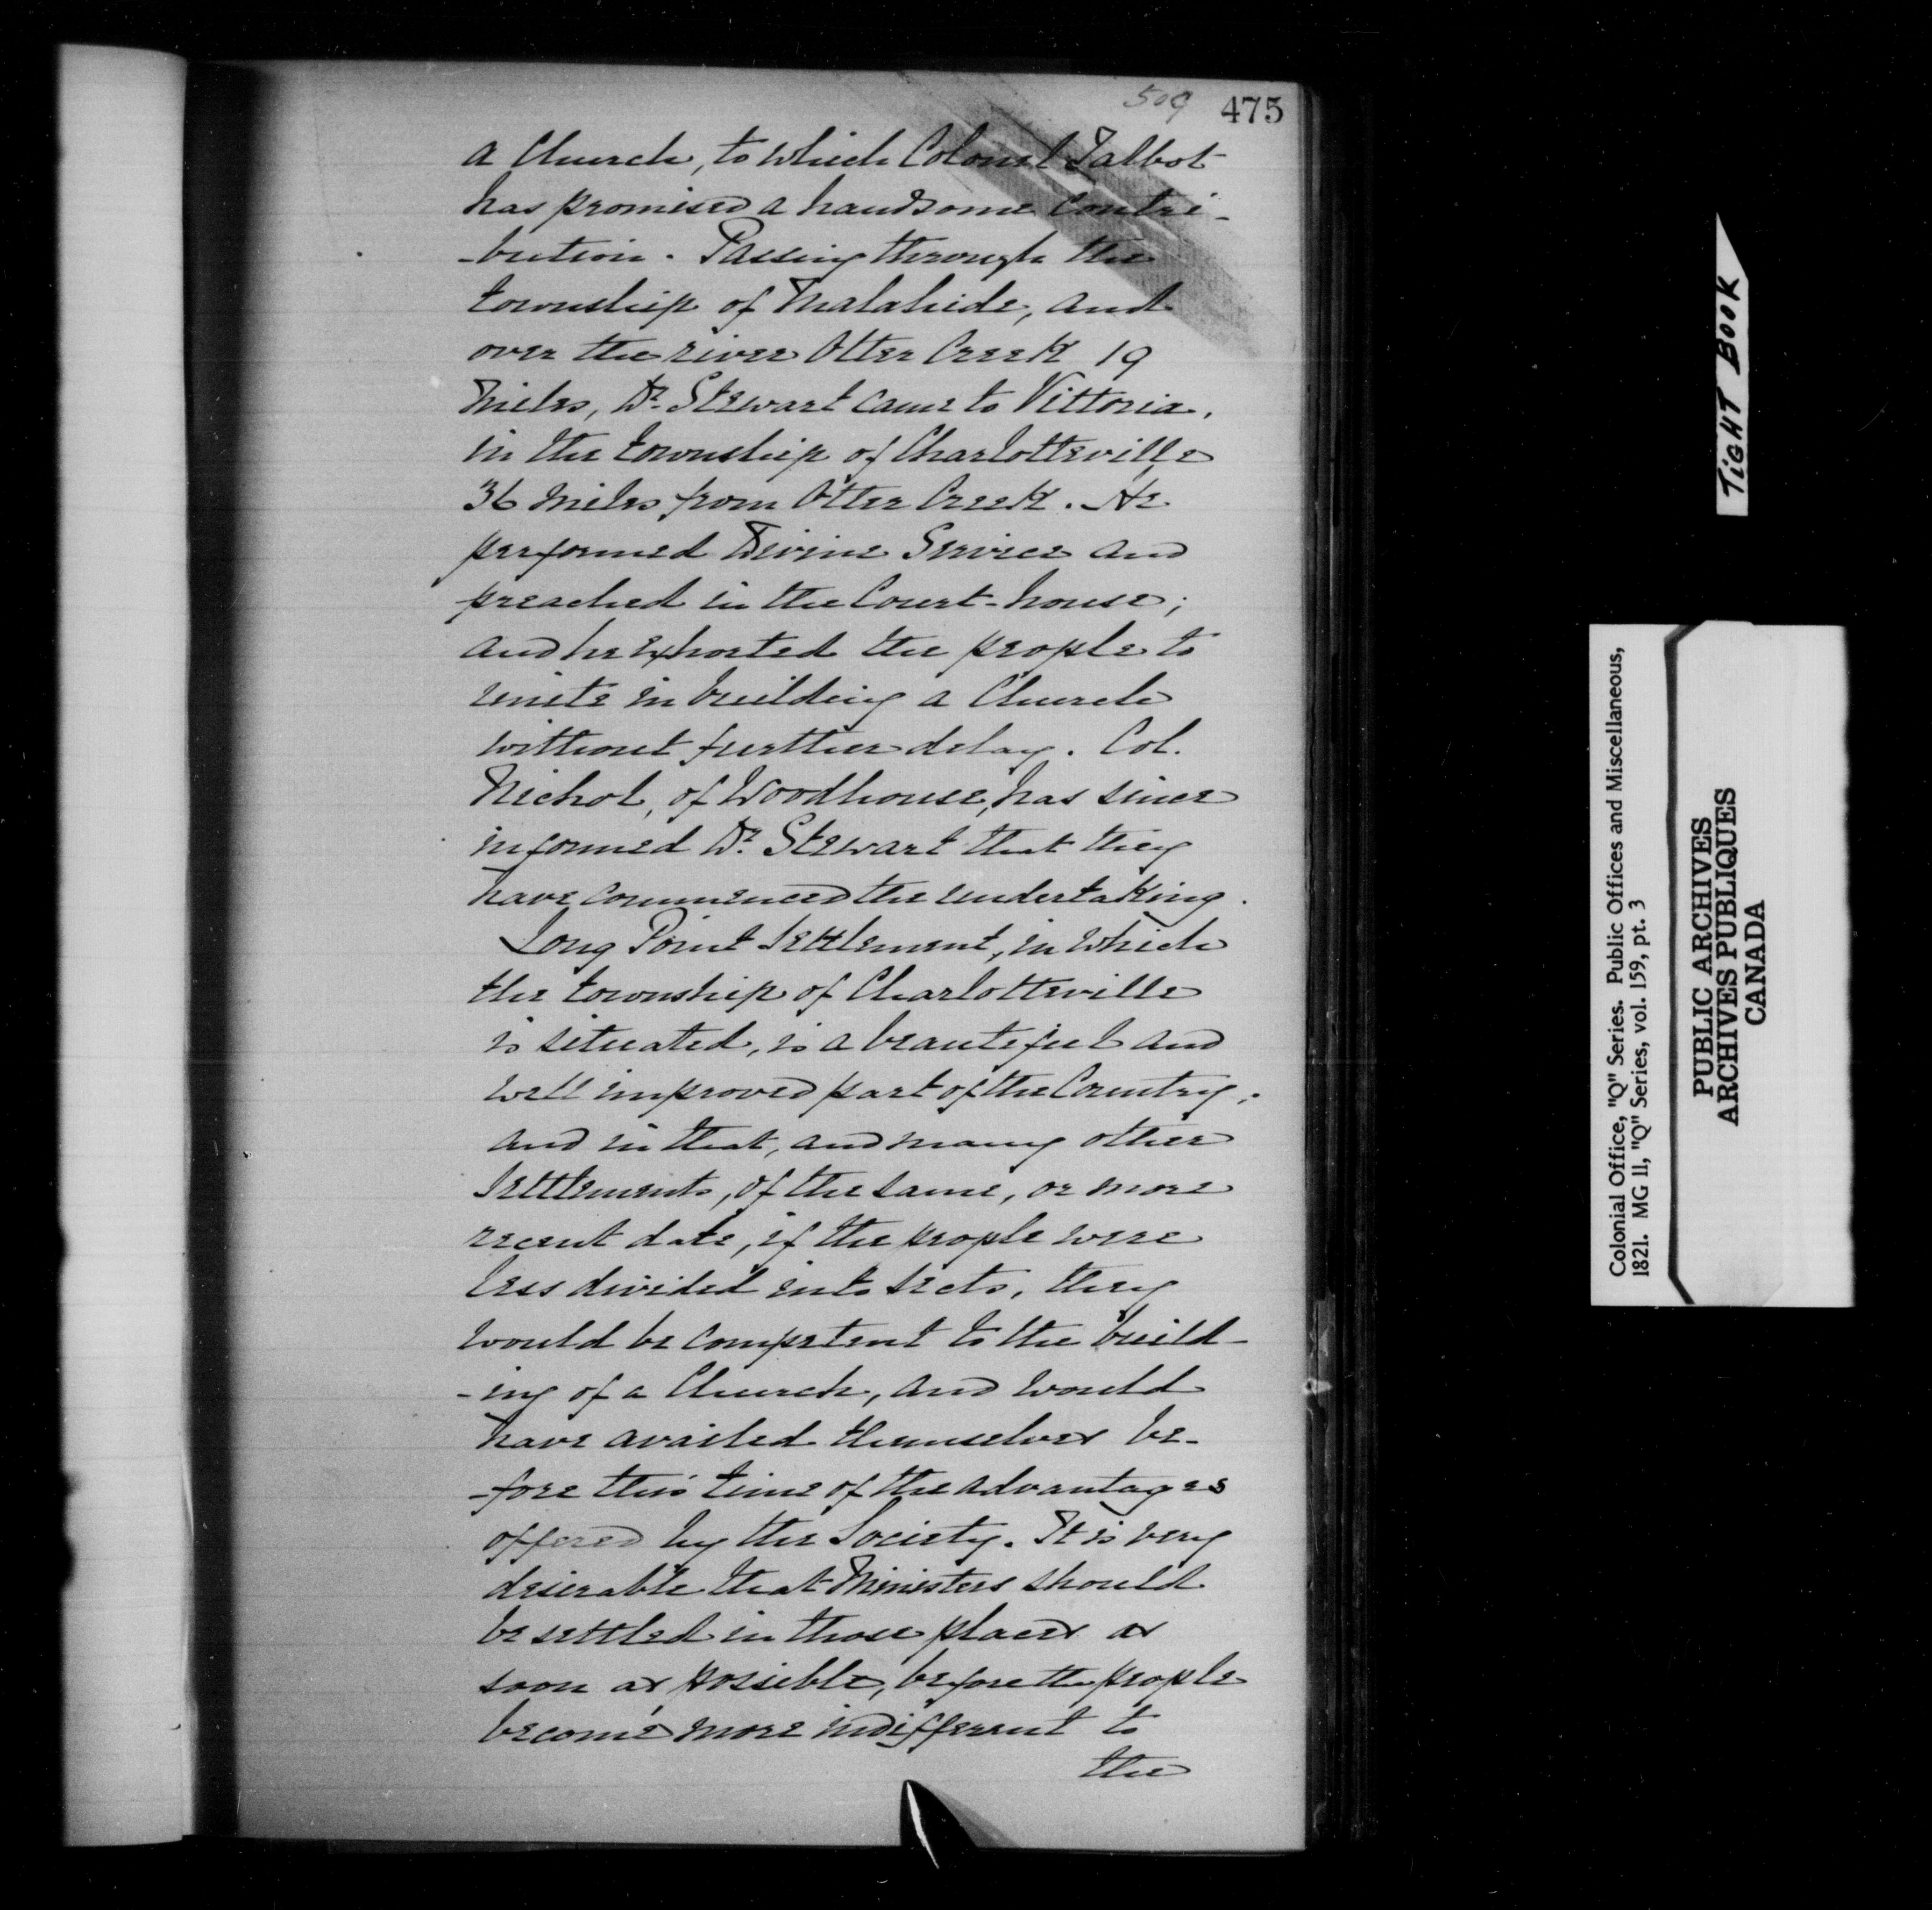 509 475
a Church, to which Colonel Talbot
has promised a handsome contri-
-bution. Passing through the
township of Malahide, and
over the river Otter Creek 19
miles, Dr. Stewart came to Vittoria,
in the township of Charlotteville
36 miles from Otter Creek. He
performed Divine Service and
preached in the Court-house;
and he exhorted the people to
unite in building a Church
without further delay. Col.
Nichol, of Woodhouse, has since
informed Dr. Stewart that they
have commenced the undertaking.
Long Point Settlement, in which
the township of Charlotteville
is situated, is a beautiful and
well improved part of the Country;
and in that, and many other
Settlements, of the same, or more
recent date, if the people were
less divided into sects, they
would be competent to the build-
-ing of a Church, and would
have availed themselves be-
-fore this time of the advantages
offered by the Society. It is very
desirable that Ministers should
be settled in those places as
soon as possible, before the people
become more indifferent to
the
TIGHT BOOK
Colonial Office, "Q" Series. Public Offices and Miscellaneous,
1821. MG 11, "Q" Series, vol. 159, pt. 3
PUBLIC ARCHIVES
ARCHIVES PUBLIQUES
CANADA